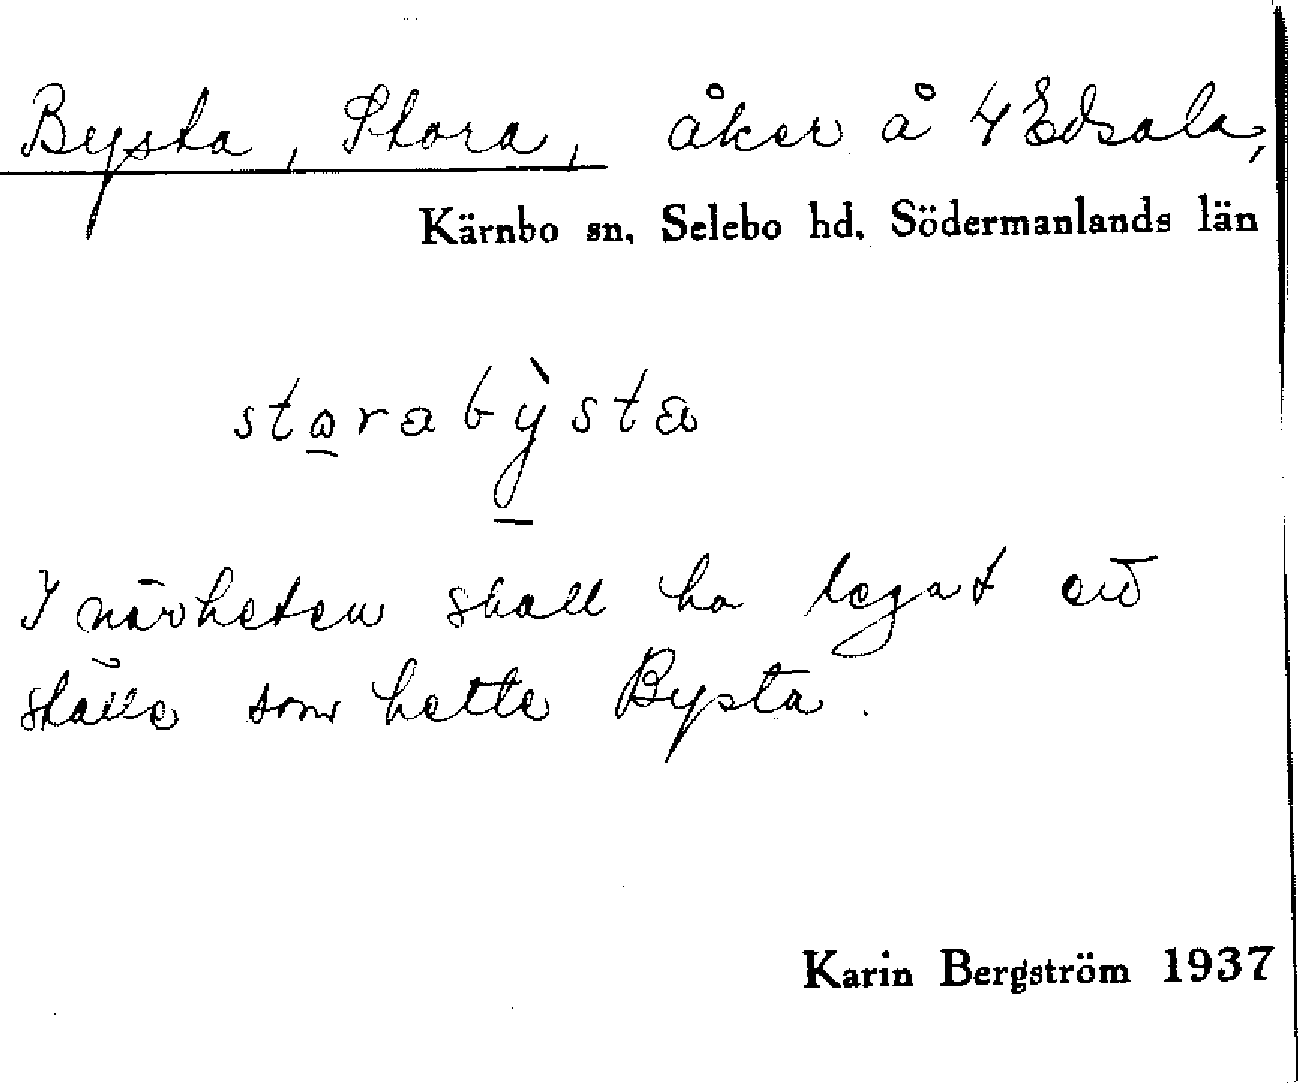 Bysta, Stora, åker å 4 Edsala,
Kärnbo sn, Selebo hd. Södermanlands län
starabỳsta
I närheten skall ha legat ett
ställe som hette Bysta.
Karin Bergström 1937